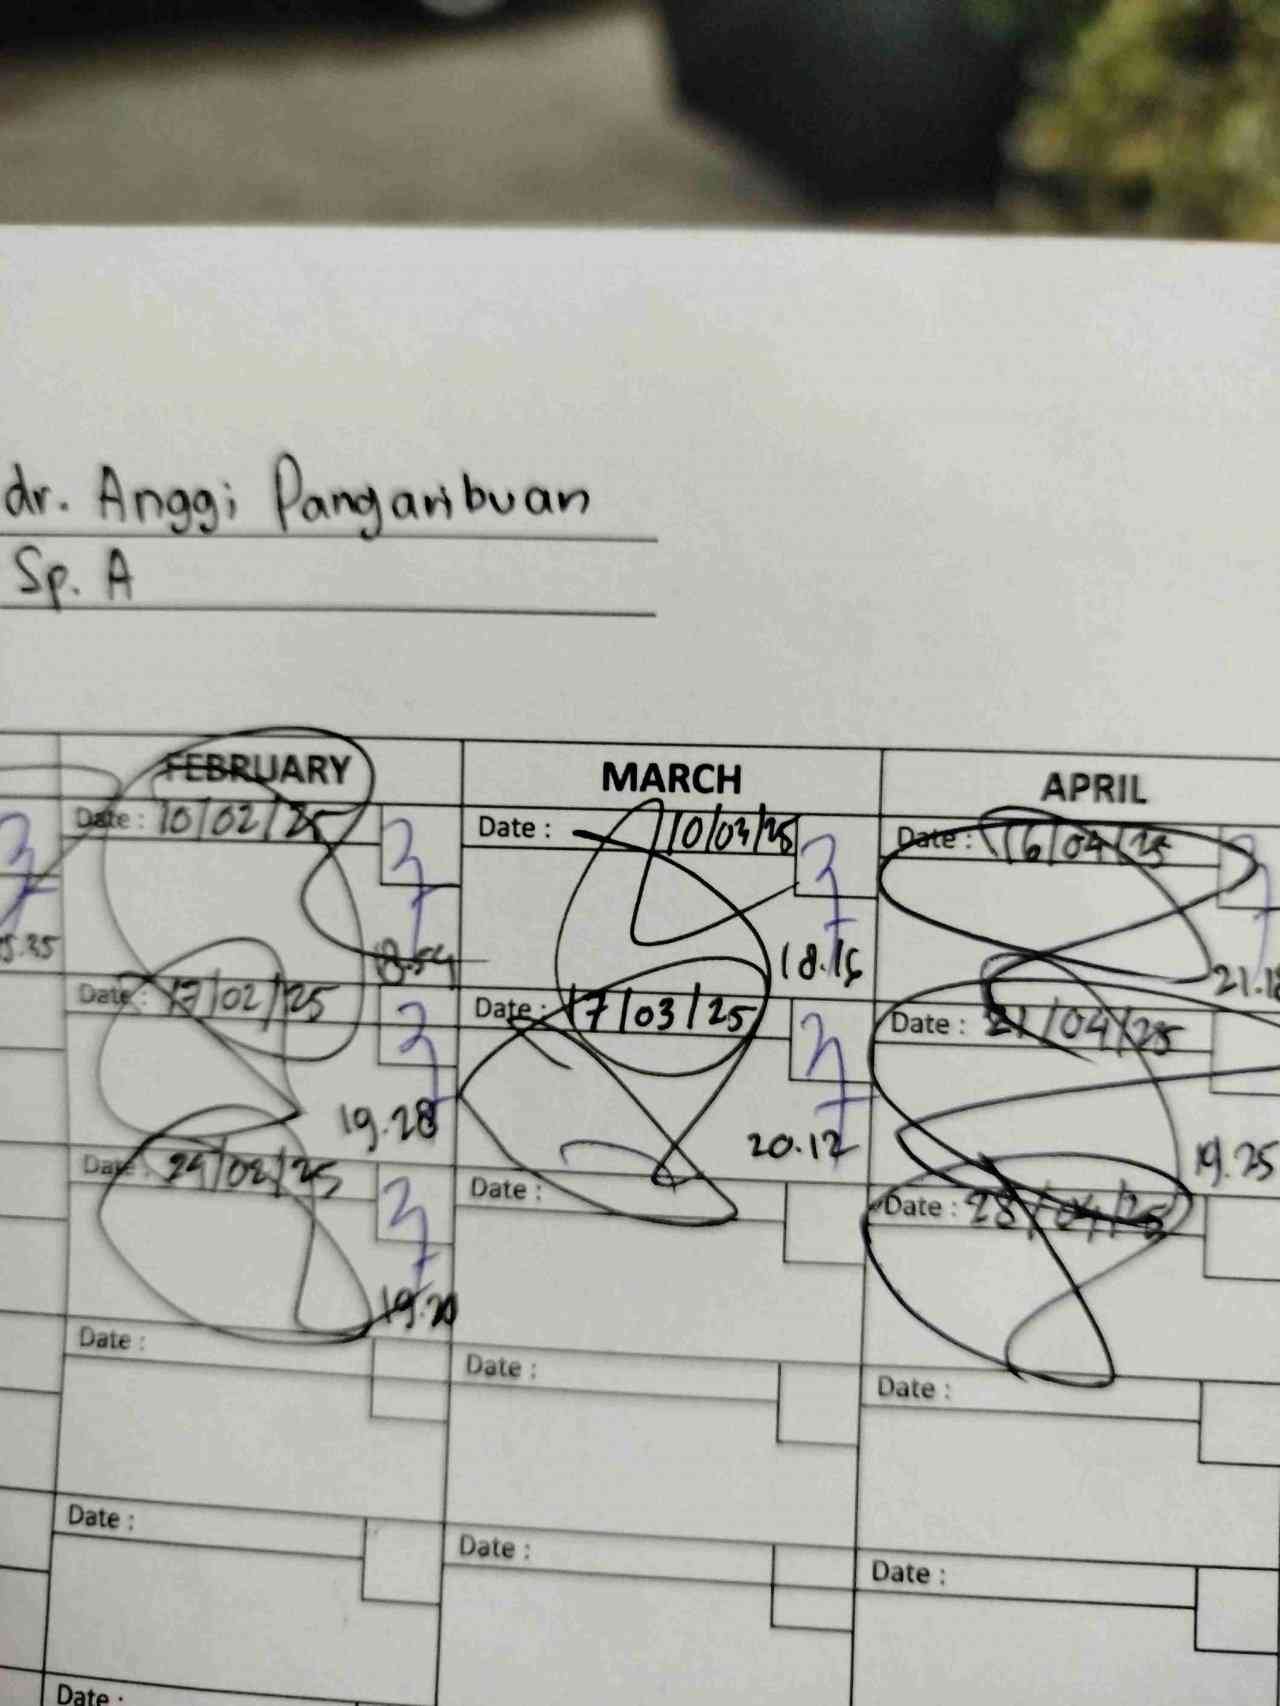 dr. Anggi Pangaribuan
Sp. A
FEBRUARY MARCH APRIL
Date : 10/02/25 Date : 10/03/25 Date : 16/04/25
18.54 18.15
Date : 17/02/25 Date : 17/03/25 Date : 21/04/25
19.28 20.12 19.25
Date : 24/02/25 Date : Date : 28/04/25
19.20
Date : Date : Date :
Date : Date : Date :
Date :